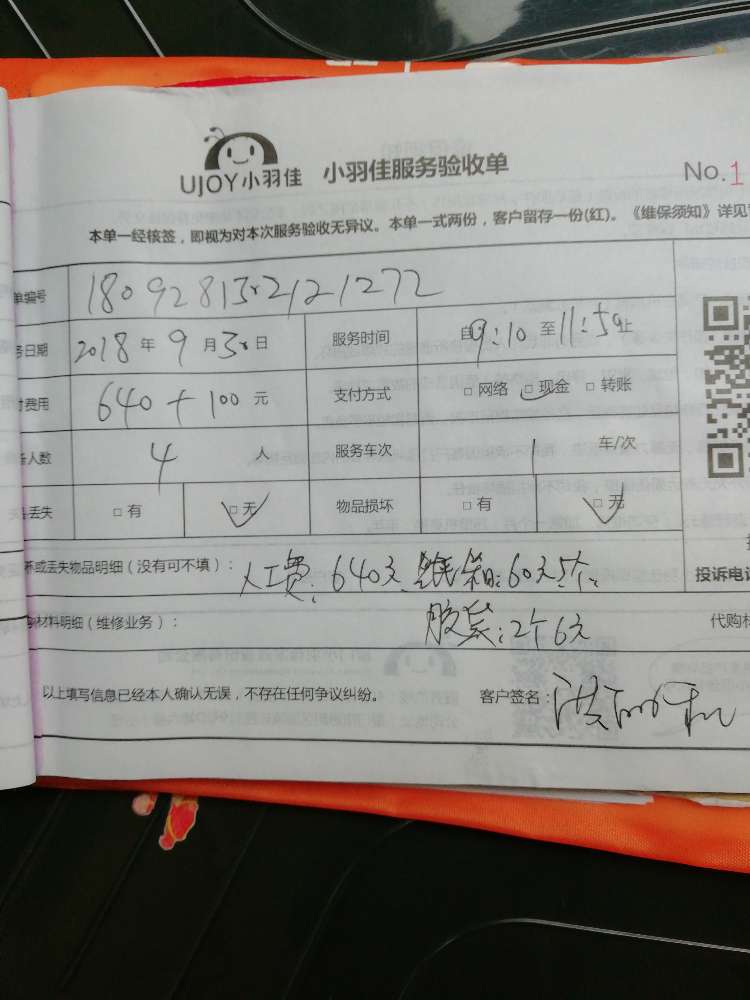 UJOY小羽佳 小羽佳服务验收单 No.1
本单一经核签，即视为对本次服务验收无异议。本单一式两份，客户留存一份(红)。《维保须知》详见
单编号
务日期 2018 年 9 月 30 日 服务时间 自9:10 至 11:50止
付费用 640 + 100 元 支付方式 □网络 □现金 □转账
人数 4 人 服务车次 1 车/次
丢失 □有 □无 物品损坏 □有 □无
坏或丢失物品明细（没有可不填）： 人工费:640元 纸箱:60元5个 投诉电话
材料明细（维修业务）： 胶袋:2个6元 代购材
以上填写信息已经本人确认无误，不存在任何争议纠纷。 客户签名： 洪